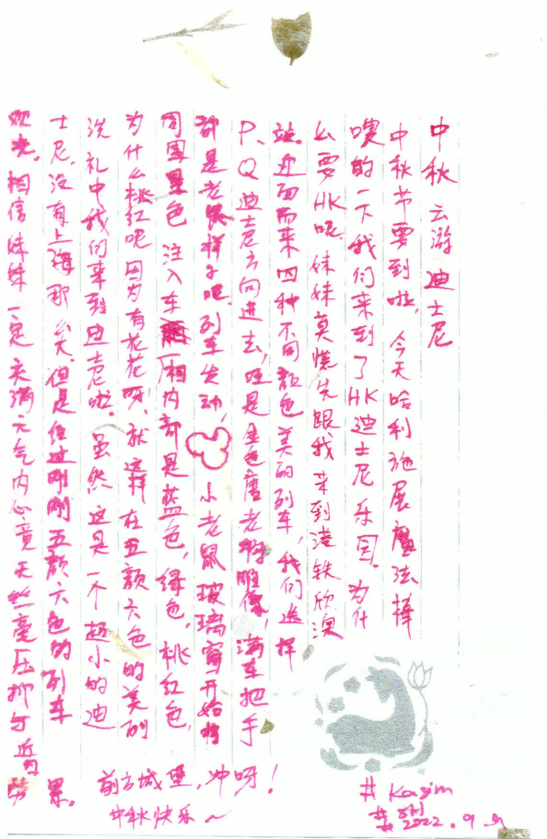 中秋 云游迪士尼
中秋节要到啦,今天哈利施展魔法棒
嗖的一下我们来到了HK迪士尼乐园。为什
么要HK呢 妹妹莫慌先跟我来到港铁欣澳
站。迎面而来四种不同颜色美的列车,我们选择
P、Q 迪士尼方向进去,哇是金色唐老鸭雕像,满车把手
都是老鼠样子吧。列车发动, 小老鼠玻璃窗开始将
周围景色 注入车厢 厢内部是蓝色,绿色,桃红色,
为什么桃红呢 因为有花花呀,就这样 在五颜六色的美的
洗礼中我们来到迪士尼啦。虽然这是一个超小的迪
士尼,没有上海那么大,但是经过刚刚五颜六色的列车
观光,相信妹妹一定 充满元气内心竟无丝毫压抑与
劳累。
前方城堡,冲呀!
中秋快乐~
# Kasim
2022.9.9